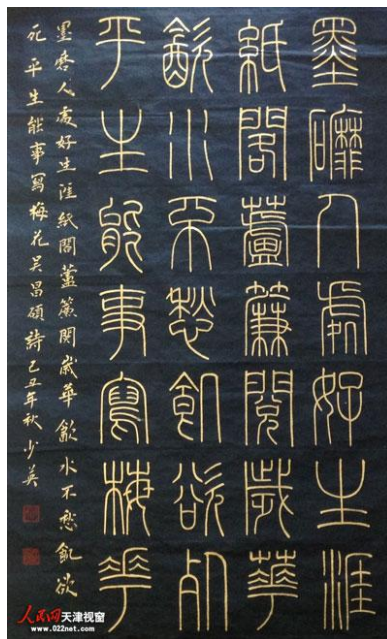 墨磨人處好生涯
紙閣蘆簾閱歲華
飲水不愁飢欲死
平生能事寫梅花
墨磨人處好生涯紙閣蘆簾閱歲華飲水不愁飢欲
死平生能事寫梅花吳昌碩詩己丑年秋少英
人民网 天津视窗
www.022net.com